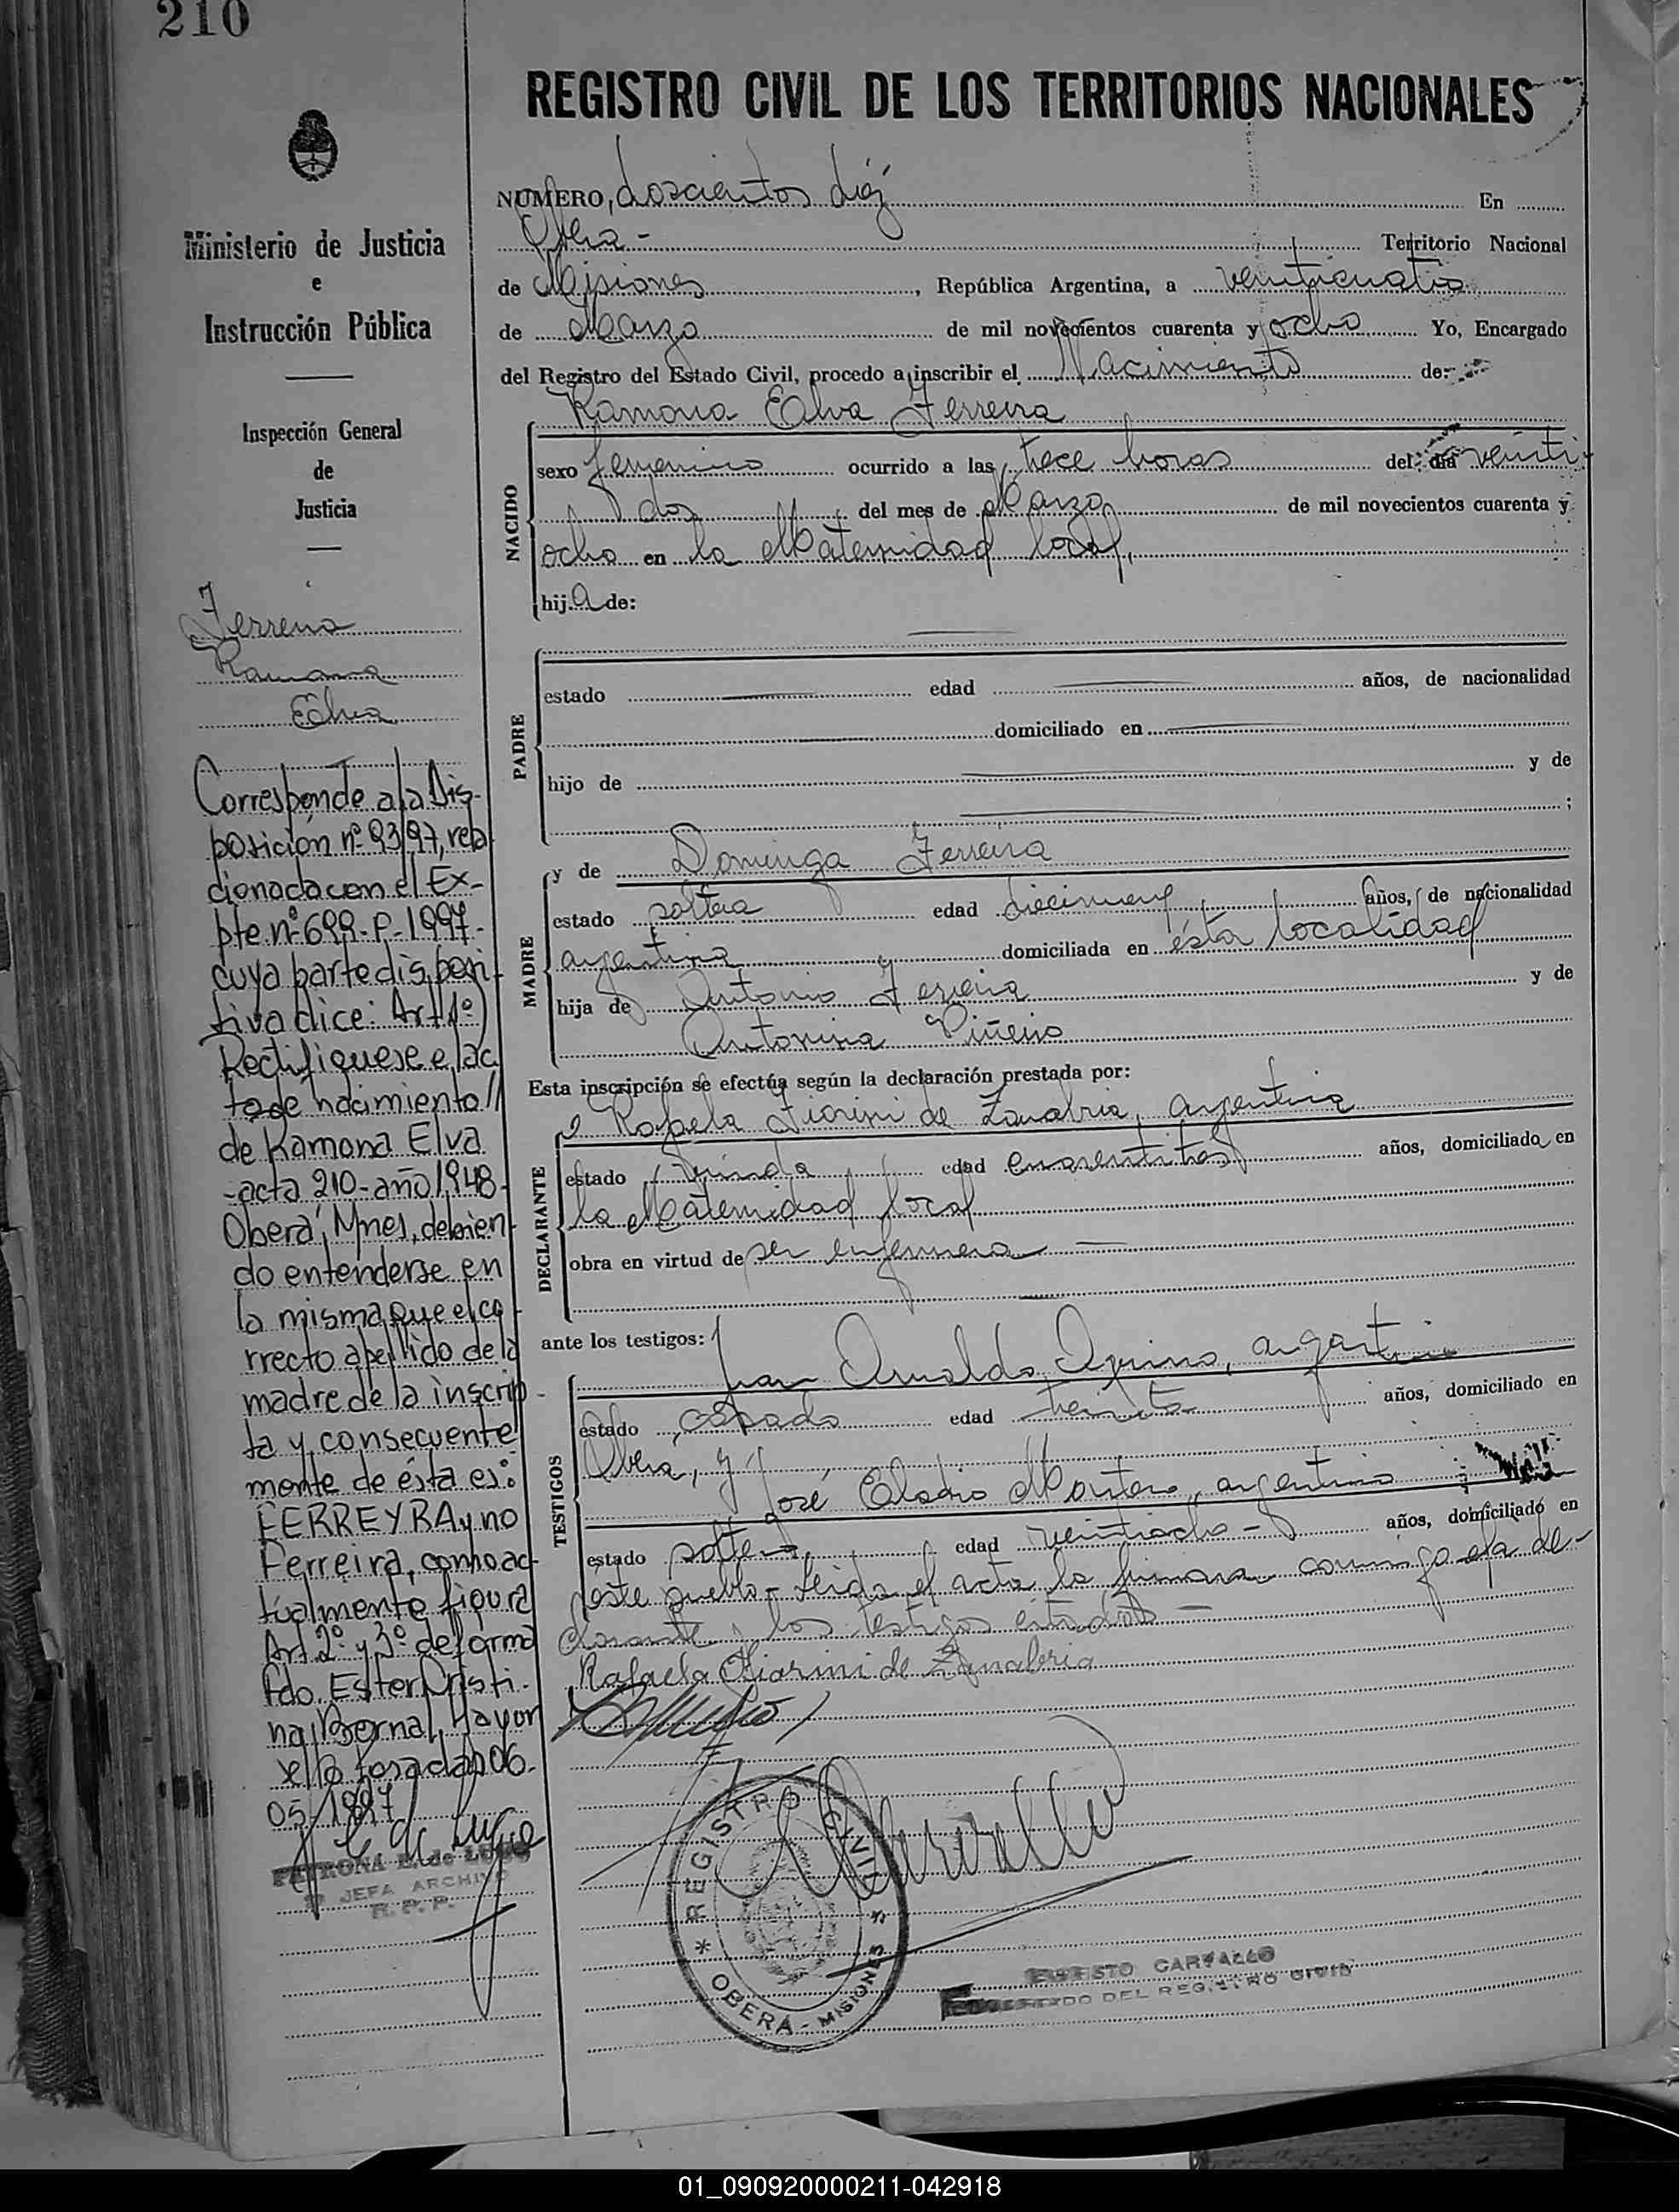 210
REGISTRO CIVIL DE LOS TERRITORIOS NACIONALES
Ministerio de Justicia
e
Instrucción Pública
Inspección General
de
Justicia
Ferreira
Ramona
Elva
Corresponde a la Dis-
posición nº 93/97, rela
cionada con el Ex-
pte. nº 699-P-1997-
cuya parte disposi
tiva dice: Art 1º)
Rectifiquese el ac
to de nacimiento//
de Ramona Elva
-acta 210-año 1948-
Oberá, Mnes, debien
do entenderse en
la misma que el co
rrecto apellido de la
madre de la inscrip-
ta y consecuente
mente de ésta es:
FERREYRA y no
Ferreira, como ac
tualmente figura
Art. 2º y 3º de forma
Fdo. Ester Cristi-
na Bernal, Mayor
sello Posadas 06-
05/1997
PETRONA E. de LUGO
JEFA ARCHIVO
R. P. P.
NUMERO, doscientos diez En
Obera - Territorio Nacional
de Misiones, República Argentina, a veinticuatro
de Marzo de mil novecientos cuarenta y ocho Yo, Encargado
del Registro del Estado Civil, procedo a inscribir el Nacimiento de:
Ramona Elva Ferreira
NACIDO
sexo femenino ocurrido a las trece horas del dia veinti
dos del mes de Marzo de mil novecientos cuarenta y
ocho en la Maternidad local,
hija de:
PADRE
estado edad años, de nacionalidad
domiciliado en
hijo de y de
;
MADRE
y de Dominga Ferreira
estado soltera edad diecinueve años, de nacionalidad
argentina domiciliada en ésta localidad
hija de Antonio Ferreira y de
Antonina Piñeiro
Esta inscripción se efectúa según la declaración prestada por:
DECLARANTE
Rafaela Fiorini de Zanabria, argentina
estado viuda edad cuarentitres años, domiciliado en
la Maternidad local
obra en virtud de ser enfermera
ante los testigos:
TESTIGOS
Juan Arnaldo Aquino, argentino
estado casado edad treinta años, domiciliado en
Obera, y José Eladio Montero, argentino
estado soltero, edad veintiocho - años, domiciliado en
este pueblo - Leida el acta la firmaron conmigo la de-
clarante y los testigos citados -
Rafaela Fiorini de Zanabria
REGISTRO CIVIL
OBERÁ - MISIONES
ERNESTO CARVALLO
ENCARGADO DEL REGISTRO CIVIL
01_090920000211-042918